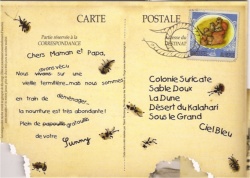 CARTE POSTALE
Partie réservée à la
CORRESPONDANCE
Adresse du
DESTINAT
Chers Maman et Papa,
avons vécu
Nous vivons sur une
vieille termitière, mais nous sommes
en train de déménager...
la nourriture est très abondante!
Plein de papouilla gratouille
de votre
Sunny
Colonie Suricate
Sable Doux
La Dune
Désert du Kalahari
Sous le Grand
Ciel Bleu